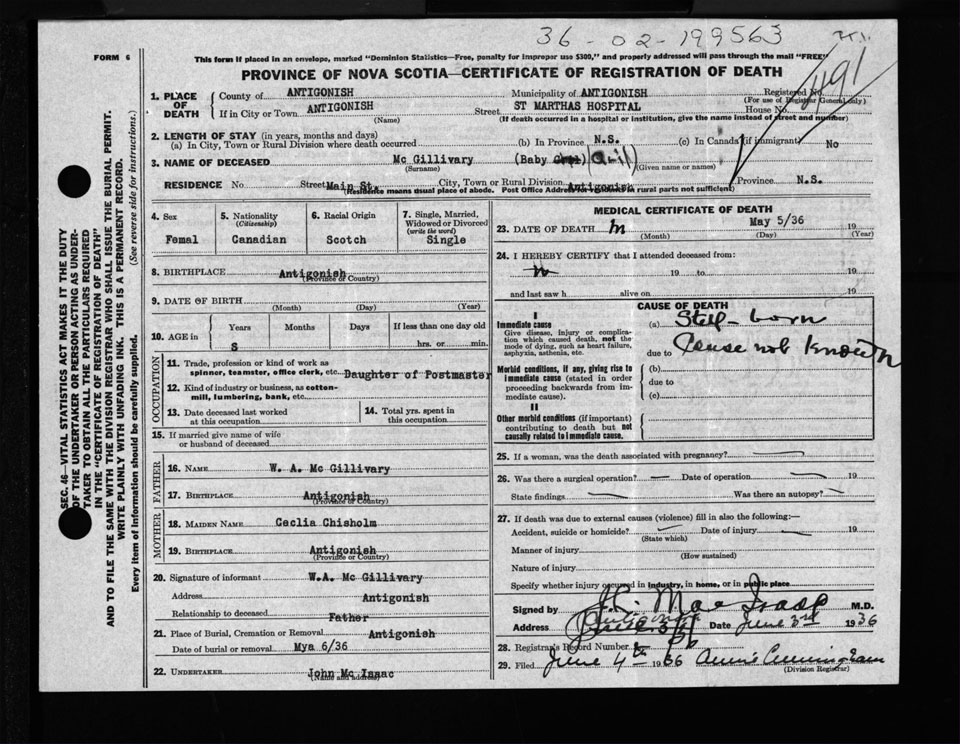 36-02-199563
FORM 6
This form if placed in an envelope, marked "Dominion Statistics—Free, penalty for improper use $300," and properly addressed will pass through the mail "FREE"
PROVINCE OF NOVA SCOTIA—CERTIFICATE OF REGISTRATION OF DEATH
1. PLACE OF DEATH
County of ANTIGONISH Municipality of ANTIGONISH Registered No.
(For use of Registrar General only)
If in City or Town ANTIGONISH Street ST MARTHAS HOSPITAL House No.
(Name) (If death occurred in a hospital or institution, give the name instead of street and number)
2. LENGTH OF STAY (in years, months and days)
(a) In City, Town or Rural Division where death occurred (b) In Province N.S. (c) In Canada (if immigrant) No
3. NAME OF DECEASED Mc Gillivary (Baby
(Surname) (Given name or names)
RESIDENCE No Street Main St. City, Town or Rural Division Antigonish Province N.S.
(Residence means usual place of abode. Post Office Address for residents in rural parts not sufficient)
4. Sex
Femal
5. Nationality
(Citizenship)
Canadian
6. Racial Origin
Scotch
7. Single, Married,
Widowed or Divorced
(write the word)
Single
8. BIRTHPLACE Antigonish
(Province or Country)
9. DATE OF BIRTH
(Month) (Day) (Year)
10. AGE in
Years Months Days If less than one day old
S hrs. or min.
OCCUPATION
11. Trade, profession or kind of work as
spinner, teamster, office clerk, etc. Daughter of Postmaster
12. Kind of industry or business, as cotton-
mill, lumbering, bank, etc.
13. Date deceased last worked
at this occupation
14. Total yrs. spent in
this occupation
15. If married give name of wife
or husband of deceased
FATHER
16. NAME W. A. Mc Gillivary
17. BIRTHPLACE Antigonish
(Province or Country)
MOTHER
18. MAIDEN NAME Ceclia Chisholm
19. BIRTHPLACE Antigonish
(Province or Country)
20. Signature of informant W.A. Mc Gillivary
Address Antigonish
Relationship to deceased Father
21. Place of Burial, Cremation or Removal Antigonish
Date of burial or removal Mya 6/36
22. UNDERTAKER John Mc Isaac
(Name and address)
MEDICAL CERTIFICATE OF DEATH
23. DATE OF DEATH May 5/36 19
(Month) (Day) (Year)
24. I HEREBY CERTIFY that I attended deceased from:
19 to 19
and last saw h alive on 19
CAUSE OF DEATH
I
Immediate cause
Give disease, injury or complica-
tion which caused death, not the
mode of dying, such as heart failure,
asphyxia, asthenia, etc.
(a) Still-born
due to Cause not known
Morbid conditions, if any, giving rise to
immediate cause (stated in order
proceeding backwards from im-
mediate cause).
(b)
due to
(c)
II
Other morbid conditions (if important)
contributing to death but not
causally related to immediate cause.
25. If a woman, was the death associated with pregnancy?
26. Was there a surgical operation? Date of operation 19
State findings Was there an autopsy?
27. If death was due to external causes (violence) fill in also the following:—
Accident, suicide or homicide? Date of injury 19
(State which)
Manner of injury
(How sustained)
Nature of injury
Specify whether injury occured in industry, in home, or in public place
Signed by Mac Isaac M.D.
Address Date June 3rd 1936
28. Registrar's Record Number
29. Filed June 4th 1936 Annie Cunningham
(Division Registrar)
SEC. 46—VITAL STATISTICS ACT MAKES IT THE DUTY
OF THE UNDERTAKER OR PERSON ACTING AS UNDER-
TAKER TO OBTAIN ALL THE PARTICULARS REQUIRED
IN THE "CERTIFICATE OF REGISTRATION OF DEATH"
AND TO FILE THE SAME WITH THE DIVISION REGISTRAR WHO SHALL ISSUE THE BURIAL PERMIT.
WRITE PLAINLY WITH UNFADING INK. THIS IS A PERMANENT RECORD.
Every item of Information should be carefully supplied. (See reverse side for instructions.)